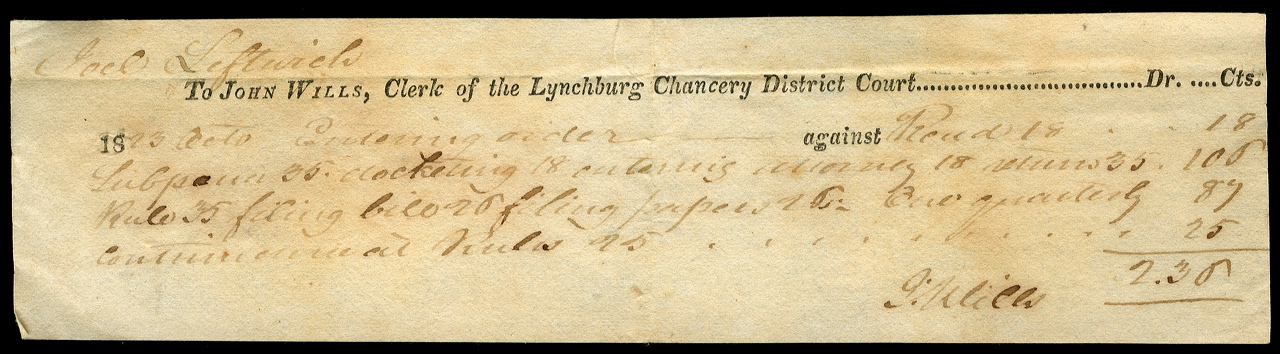 Joel Leftwich
To JOHN WILLS, Clerk of the Lynchburg Chancery District Court..................................Dr. ....Cts.
1813 Octo Entering order against Read 18 . . 18
Subpoena 35. docketing 18 entering attorney 18 return 35. 106
Rule 35 filing bill 26 filing papers 26. 87
continuance at Rules 25 . . . . . . . . . . 25
2.36
J. Wills